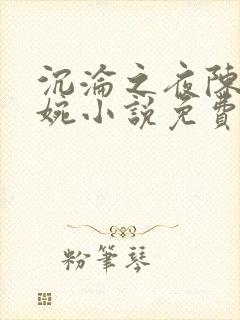 沉淪之夜陳
婉小說免費
粉筆琴